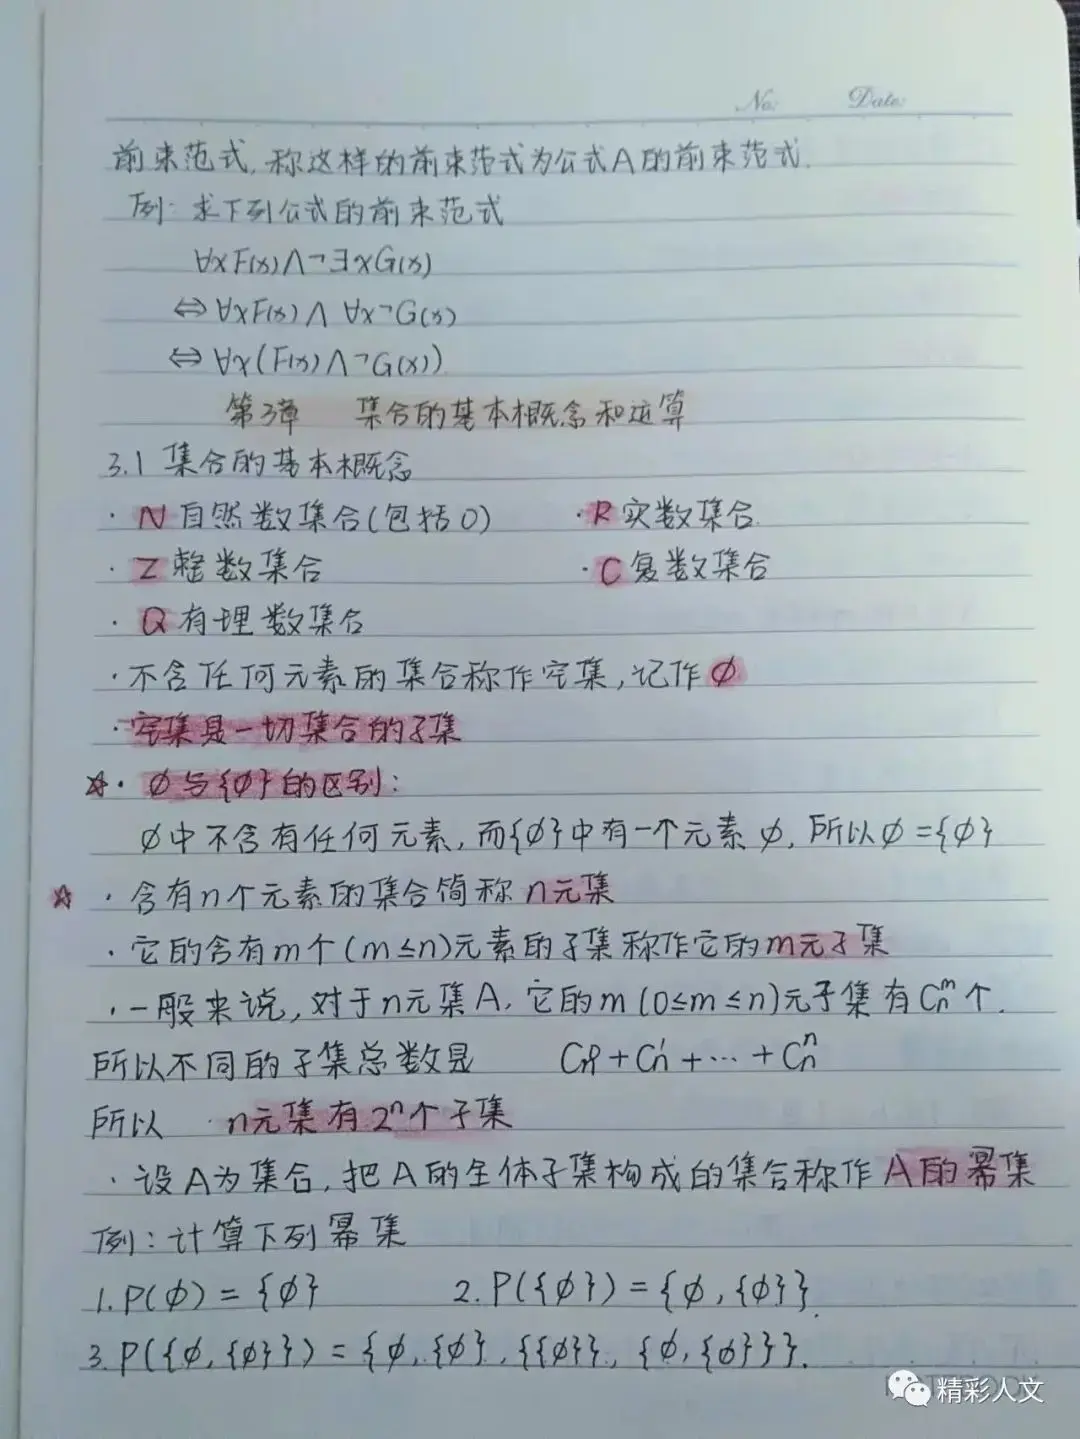 No: Date:
前束范式,称这样的前束范式为公式A的前束范式.
例:求下列公式的前束范式
∀xF(x)∧¬∃xG(x)
⇔∀xF(x)∧ ∀x¬G(x)
⇔∀x(F(x)∧¬G(x))
第3章 集合的基本概念和运算
3.1 集合的基本概念
·N 自然数集合(包括0) ·R 实数集合.
·Z 整数集合 ·C 复数集合
·Q 有理数集合
·不含任何元素的集合称作空集,记作∅
·空集是一切集合的子集
☆·∅与{∅}的区别:
∅中不含有任何元素,而{∅}中有一个元素∅,所以∅={∅}
☆·含有n个元素的集合简称n元集
·它的含有m个(m≤n)元素的子集称作它的m元子集
·一般来说,对于n元集A,它的m(0≤m≤n)元子集有Cₙᵐ个.
所以不同的子集总数是 Cₙ⁰+Cₙ¹+…+Cₙⁿ
所以 n元集有2ⁿ个子集
·设A为集合,把A的全体子集构成的集合称作A的幂集
例:计算下列幂集
1.P(∅)={∅} 2.P({∅})={∅,{∅}}.
3.P({∅,{∅}})={∅,{∅},{{∅}},{∅,{∅}}}.
精彩人文